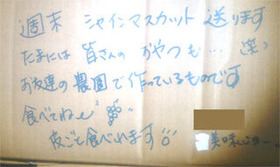 週末 シャインマスカット 送ります
たまには 皆さんの おやつも…
お友達の農園で作っているものです
食べてねェ
皮ごと食べれます
美味しヨー